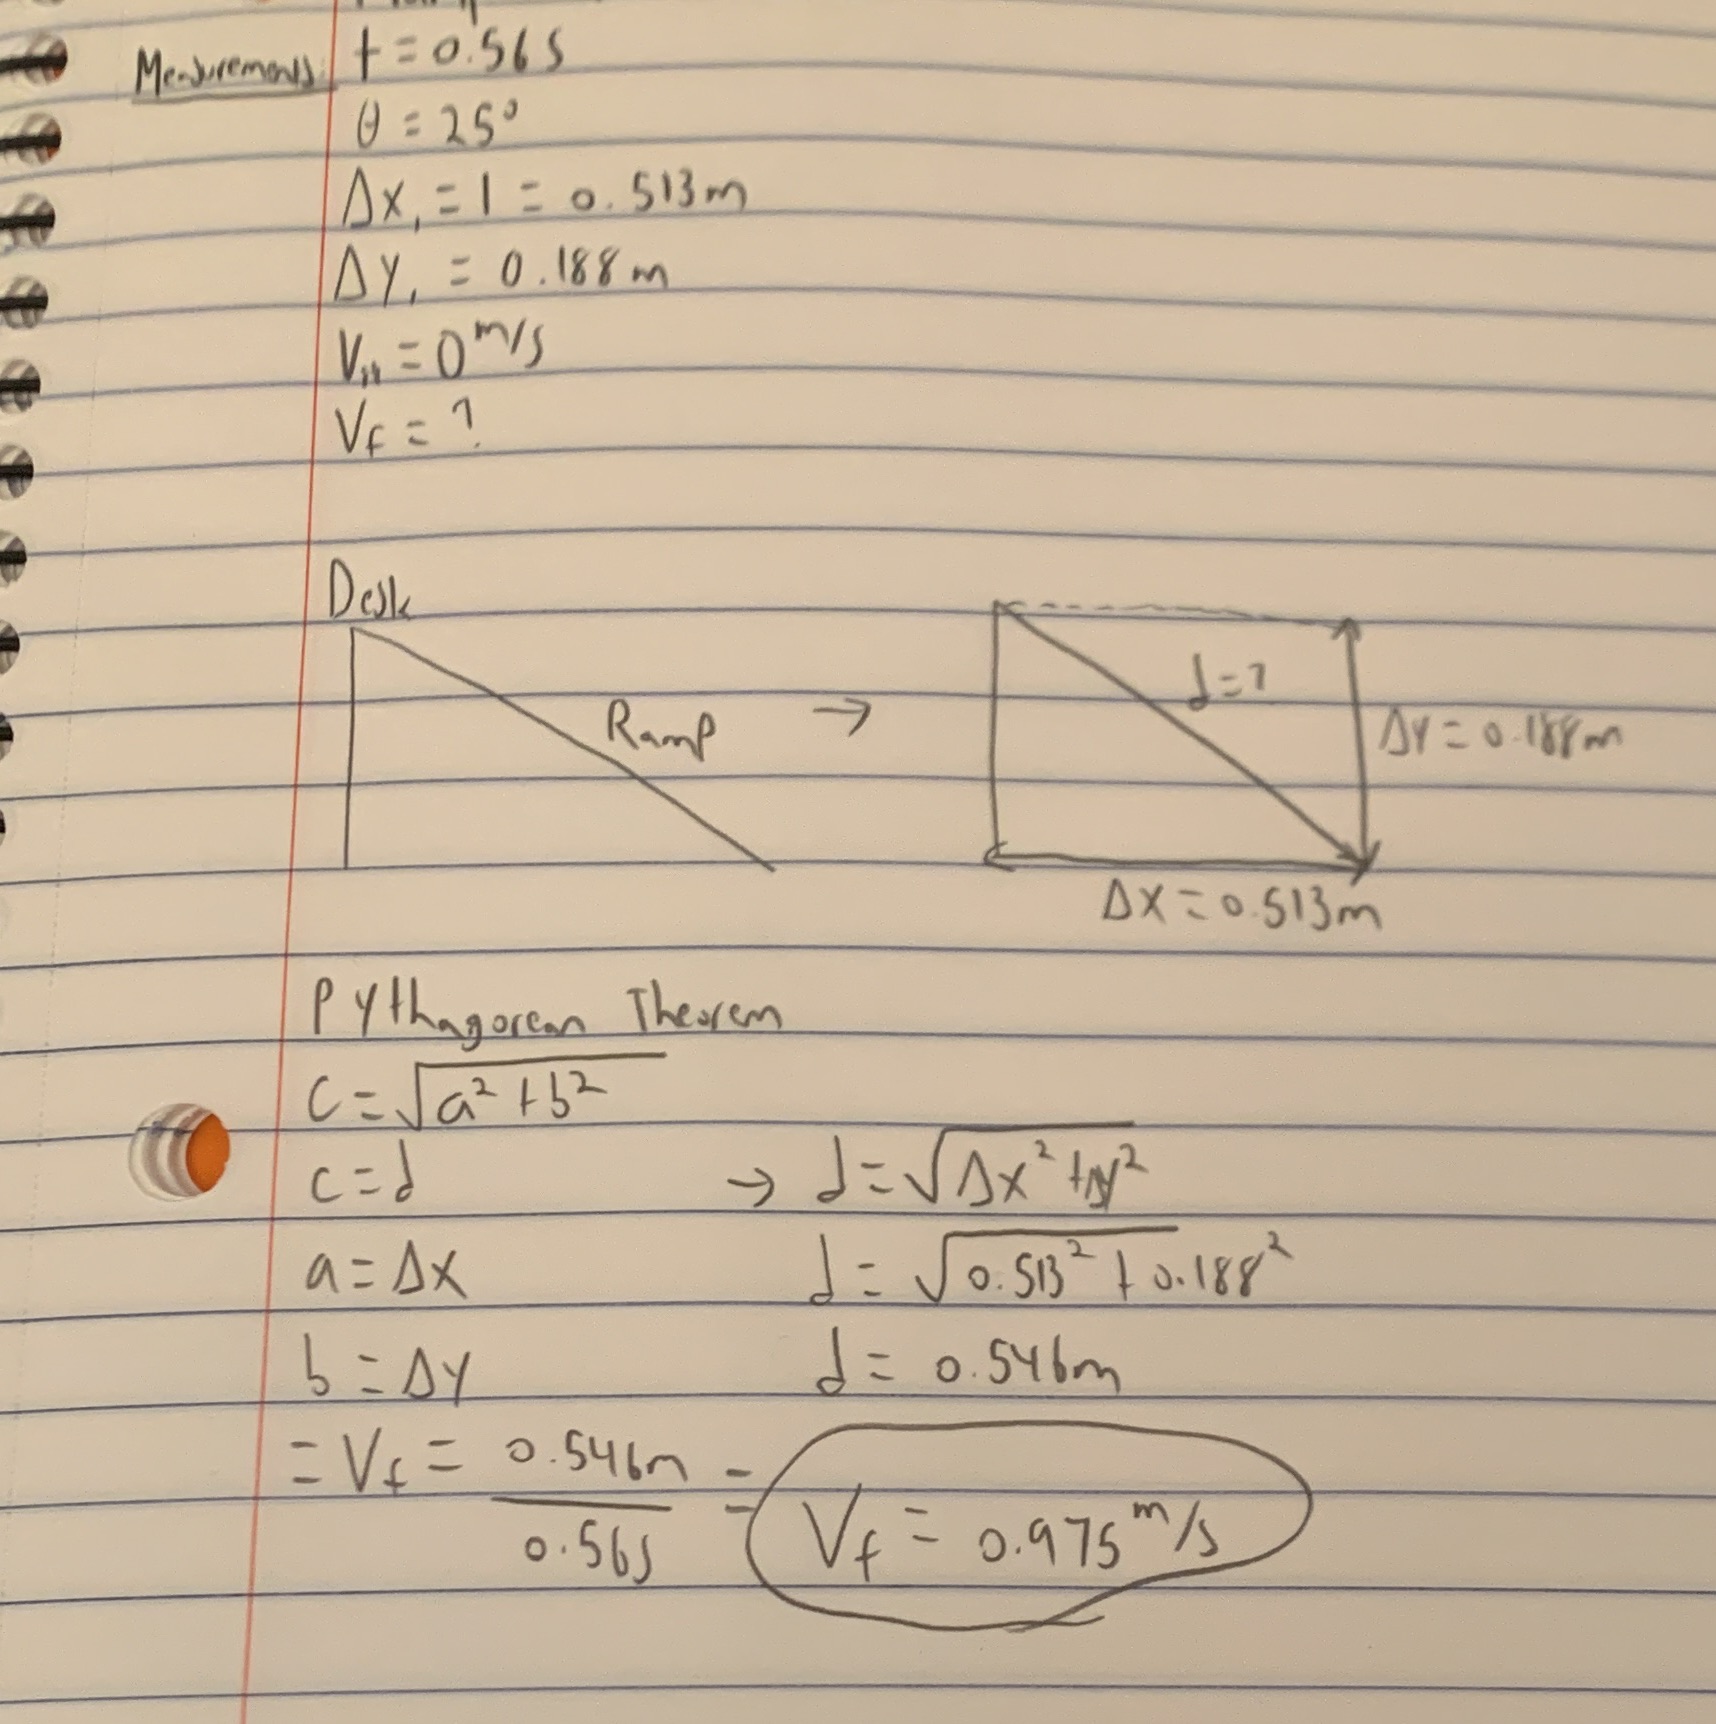 Measurements: t = 0.56s
θ = 25°
Δx₁ = 1 = 0.513m
Δy₁ = 0.188m
= 0 m/s
Vf = ?
Desk
Ramp →
d = ?
Δy = 0.188m
Δx = 0.513m
Pythagorean Theorem
c = √a² + b²
c = d → d = √Δx² + Δy²
a = Δx d = √0.513² + 0.188²
b = Δy d = 0.546m
= Vf = 0.546m / 0.56s = Vf = 0.975 m/s